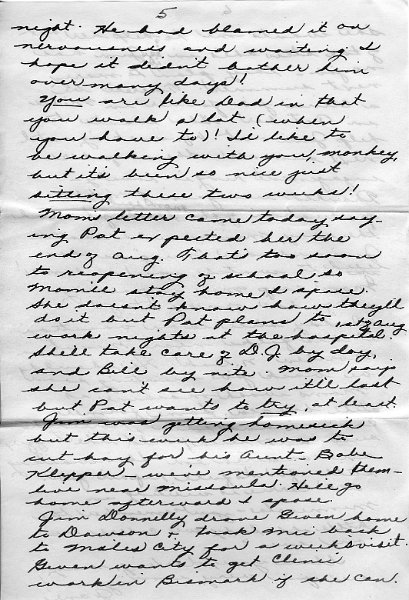 5
night. He had blamed it on
nervousness and waiting I
hope it didn't bother him
over many days!
You are like Dad in that
you walk a lot (when
you have to)! I'd like to
be walking with you, monkey,
but it's been so nice just
sitting these two weeks!
Moms letter came today say-
ing Pat expected her the
end of Aug. That's too soon
to reopening of school so
Mom'll stay home I spose.
She doesn't know how they'll
do it but Pat plans to, 1st of Aug
work nights at the hospital.
She'll take care of D.J. by day,
and Bill by nite. Mom says
she can't see how it'll last
but Pat wants to try, at least.
Jim was getting homesick
but this week he was to
cut hay for his Aunt - Babe
Klepper - we've mentioned them -
live near Missoula. He'll go
home afterward I spose.
Jim Donnelly drove Gwen home
to Dawson & took Mic back
to Miles City for a week's visit.
Gwen wants to get Clinic
work in Bismark if she can.